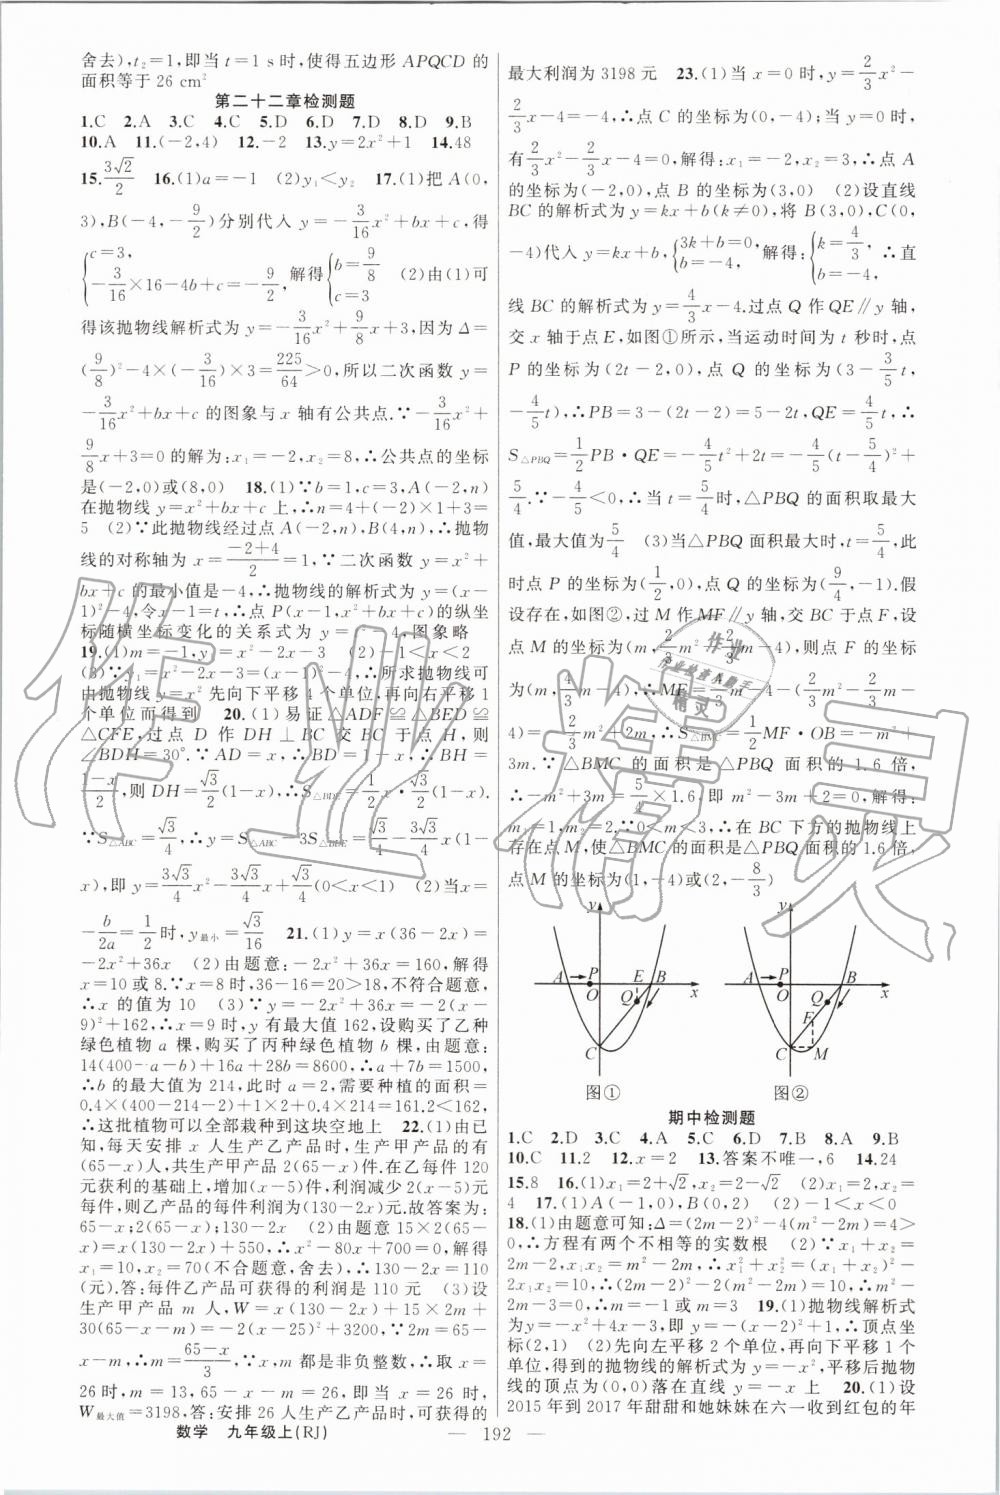 舍去),t₂=1,即当 t=1 s时,使得五边形 APQCD 的
面积等于 26 cm²
第二十二章检测题
1.C 2.A 3.C 4.C 5.D 6.D 7.D 8.D 9.B
10.A 11.(-2,4) 12.-2 13.y=2x²+1 14.48
15. 3√2/2 16.(1)a=-1 (2)y₁<y₂ 17.(1)把 A(0,
3),B(-4,-9/2)分别代入 y=-3/16x²+bx+c,得
{c=3, -3/16×16-4b+c=-9/2, 解得{b=9/8 c=3 (2)由(1)可
得该抛物线解析式为 y=-3/16x²+9/8x+3,因为 Δ=
(9/8)²-4×(-3/16)×3=225/64>0,所以二次函数 y=
-3/16x²+bx+c 的图象与 x 轴有公共点.∵-3/16x²+
9/8x+3=0 的解为:x₁=-2,x₂=8,∴公共点的坐标
是(-2,0)或(8,0) 18.(1)∵b=1,c=3,A(-2,n)
在抛物线 y=x²+bx+c 上,∴n=4+(-2)×1+3=
5 (2)∵此抛物线经过点 A(-2,n),B(4,n),∴抛物
线的对称轴为 x=(-2+4)/2=1,∵二次函数 y=x²+
bx+c 的最小值是-4,∴抛物线的解析式为 y=(x-
1)²-4,令x-1=t,∴点 P(x-1,x²+bx+c)的纵坐
标随横坐标变化的关系式为 y=x²-4,图象略
19.(1)m=-1,y=x²-2x-3 (2)-1<x<2
(3)∵y=x²-2x-3=(x-1)²-4,∴所求抛物线可
由抛物线 y=x² 先向下平移 4 个单位,再向右平移 1
个单位而得到 20.(1)易证△ADF≌△BED≌
△CFE,过点 D 作 DH⊥BC 交 BC 于点 H,则
∠BDH=30°.∵AD=x,∴BD=1-x,∴BH=
(1-x)/2,则 DH=√3/2(1-x),∴S△BDE=√3/4x·(1-x).
∵S△ABC=√3/4,∴y=S△ABC-3S△BDE=√3/4-3√3/4x(1-
x),即 y=3√3/4x²-3√3/4x+√3/4(0<x<1) (2)当x=
-b/2a=1/2时,y最小=√3/16 21.(1)y=x(36-2x)=
-2x²+36x (2)由题意:-2x²+36x=160,解得
x=10或8.∵x=8时,36-16=20>18,不符合题意,
∴x 的值为 10 (3)∵y=-2x²+36x=-2(x-
9)²+162,∴x=9时,y有最大值162,设购买了乙种
绿色植物 a 棵,购买了丙种绿色植物 b 棵,由题意:
14(400-a-b)+16a+28b=8600,∴a+7b=1500,
∴b 的最大值为 214,此时 a=2,需要种植的面积=
0.4×(400-214-2)+1×2+0.4×214=161.2<162,
∴这批植物可以全部栽种到这块空地上 22.(1)由已
知,每天安排 x 人生产乙产品时,生产甲产品的有
(65-x)人,共生产甲产品 2(65-x)件.在乙每件 120
元获利的基础上,增加(x-5)件,利润减少 2(x-5)元
每件,则乙产品的每件利润为(130-2x)元.故答案为:
65-x;2(65-x);130-2x (2)由题意 15×2(65-
x)=x(130-2x)+550,∴x²-80x+700=0,解得
x₁=10,x₂=70(不合题意,舍去),∴130-2x=110
(元).答:每件乙产品可获得的利润是 110 元 (3)设
生产甲产品 m 人,W=x(130-2x)+15×2m+
30(65-x-m)=-2(x-25)²+3200,∵2m=65-
x-m,∴m=(65-x)/3,∵x,m 都是非负整数,∴取 x=
26时,m=13,65-x-m=26,即当 x=26 时,
W最大值=3198,答:安排 26 人生产乙产品时,可获得的
最大利润为 3198 元 23.(1)当 x=0时,y=2/3x²-
2/3x-4=-4,∴点 C 的坐标为(0,-4);当 y=0时,
有2/3x²-2/3x-4=0,解得:x₁=-2,x₂=3,∴点 A
的坐标为(-2,0),点 B 的坐标为(3,0) (2)设直线
BC 的解析式为 y=kx+b(k≠0),将 B(3,0),C(0,
-4)代入 y=kx+b,{3k+b=0, b=-4, 解得:{k=4/3, b=-4, ∴直
线 BC 的解析式为 y=4/3x-4.过点 Q 作 QE∥y 轴,
交 x 轴于点 E,如图①所示,当运动时间为 t 秒时,点
P 的坐标为(2t-2,0),点 Q 的坐标为(3-3/5t,
-4/5t),∴PB=3-(2t-2)=5-2t,QE=4/5t,∴
S△PBQ=1/2PB·QE=-4/5t²+2t=-4/5(t-5/4)²+
5/4.∵-4/5<0,∴当 t=5/4时,△PBQ 的面积取最大
值,最大值为5/4 (3)当△PBQ 面积最大时,t=5/4,此
时点 P 的坐标为(1/2,0),点 Q 的坐标为(9/4,-1).假
设存在,如图②,过 M 作 MF∥y 轴,交 BC 于点 F,设
点 M 的坐标为(m,2/3m²-2/3m-4),则点 F 的坐标
为(m,4/3m-4),∴MF=4/3m-4-(2/3m²-2/3m-
4)=-2/3m²+2m,∴S△BMC=1/2MF·OB=-m²+
3m.∵△BMC 的面积是△PBQ 面积的 1.6 倍,
∴-m²+3m=5/4×1.6,即 m²-3m+2=0,解得:
m₁=1,m₂=2,∵0<m<3,∴在 BC 下方的抛物线上
存在点 M,使△BMC 的面积是△PBQ 面积的 1.6 倍,
点 M 的坐标为(1,-4)或(2,-8/3)
y A P O E B x Q C
y A P O B x Q E C M
图① 图②
期中检测题
1.C 2.D 3.C 4.A 5.C 6.D 7.B 8.A 9.B
10.C 11.2 12.x=2 13.答案不唯一,6 14.24
15.8 16.(1)x₁=2+√2,x₂=2-√2 (2)x₁=2,x₂=
4 17.(1)A(-1,0),B(0,2) (2)-1<x<0
18.(1)由题意可知:Δ=(2m-2)²-4(m²-2m)=4>
0,∴方程有两个不相等的实数根 (2)∵x₁+x₂=
2m-2,x₁x₂=m²-2m,∴x₁²+x₂²=(x₁+x₂)²-
2x₁x₂=10,∴(2m-2)²-2(m²-2m)=10,∴m²-
2m-3=0,∴m=-1或m=3 19.(1)抛物线解析式
为y=-x²+4x-3,即 y=-(x-2)²+1,∴顶点坐
标(2,1) (2)先向左平移 2 个单位,再向下平移 1 个
单位,得到的抛物线的解析式为 y=-x²,平移后抛物
线的顶点为(0,0)落在直线 y=-x 上 20.(1)设
2015 年到 2017 年甜甜和她妹妹在六一收到红包的年
数学 九年级上(RJ)
— 192 —
作业精灵
作业
作业检查小助手
精灵